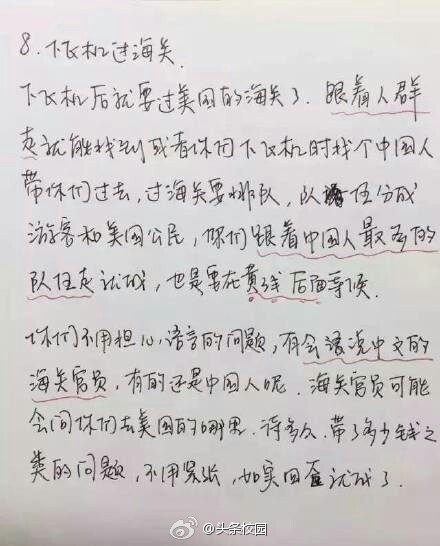 8.下飞机过海关.
下飞机后就要过美国的海关了.跟着人群
走就能找到或者你问下飞机时找个中国人
带你们过去,过海关要排队,队伍分成
游客和美国公民,你们跟着中国人最多的
队伍走就成,也是要在黄线后面等候.
你们不用担心语言的问题,有会说中文的
海关官员,有的还是中国人呢.海关官员可能
会问你们去美国的哪里.待多久.带了多少钱之
类的问题,不用紧张,如实回答就成了.
@头条校园